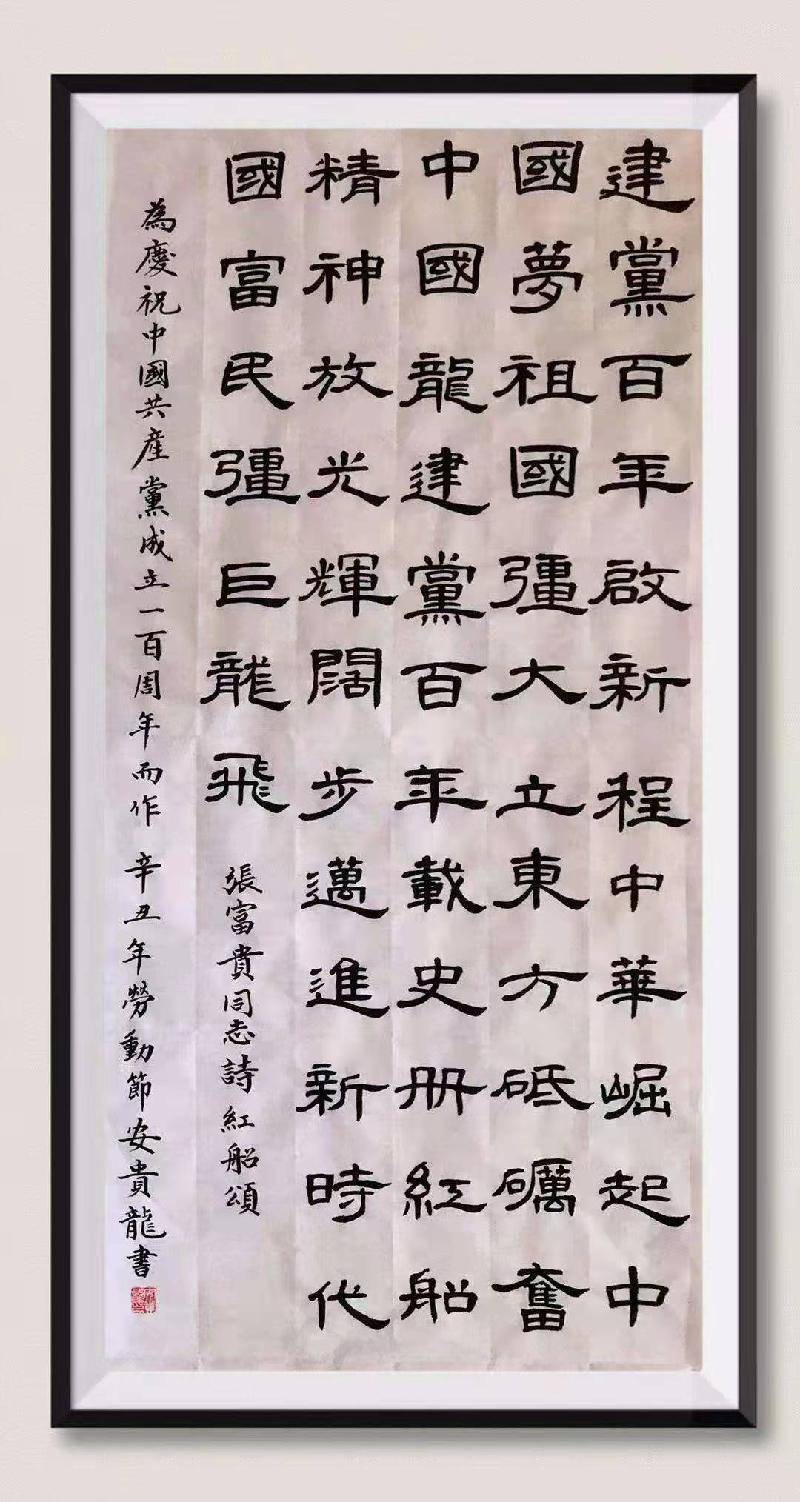 建黨百年啟新程中華崛起中
國夢祖國彊大立東方砥礪奮
中國龍建黨百年載史册紅船
精神放光輝闊步邁進新時代
國富民彊巨龍飛
張富貴同志詩紅船頌
為慶祝中國共產黨成立一百周年而作 辛丑年勞動節安貴龍書